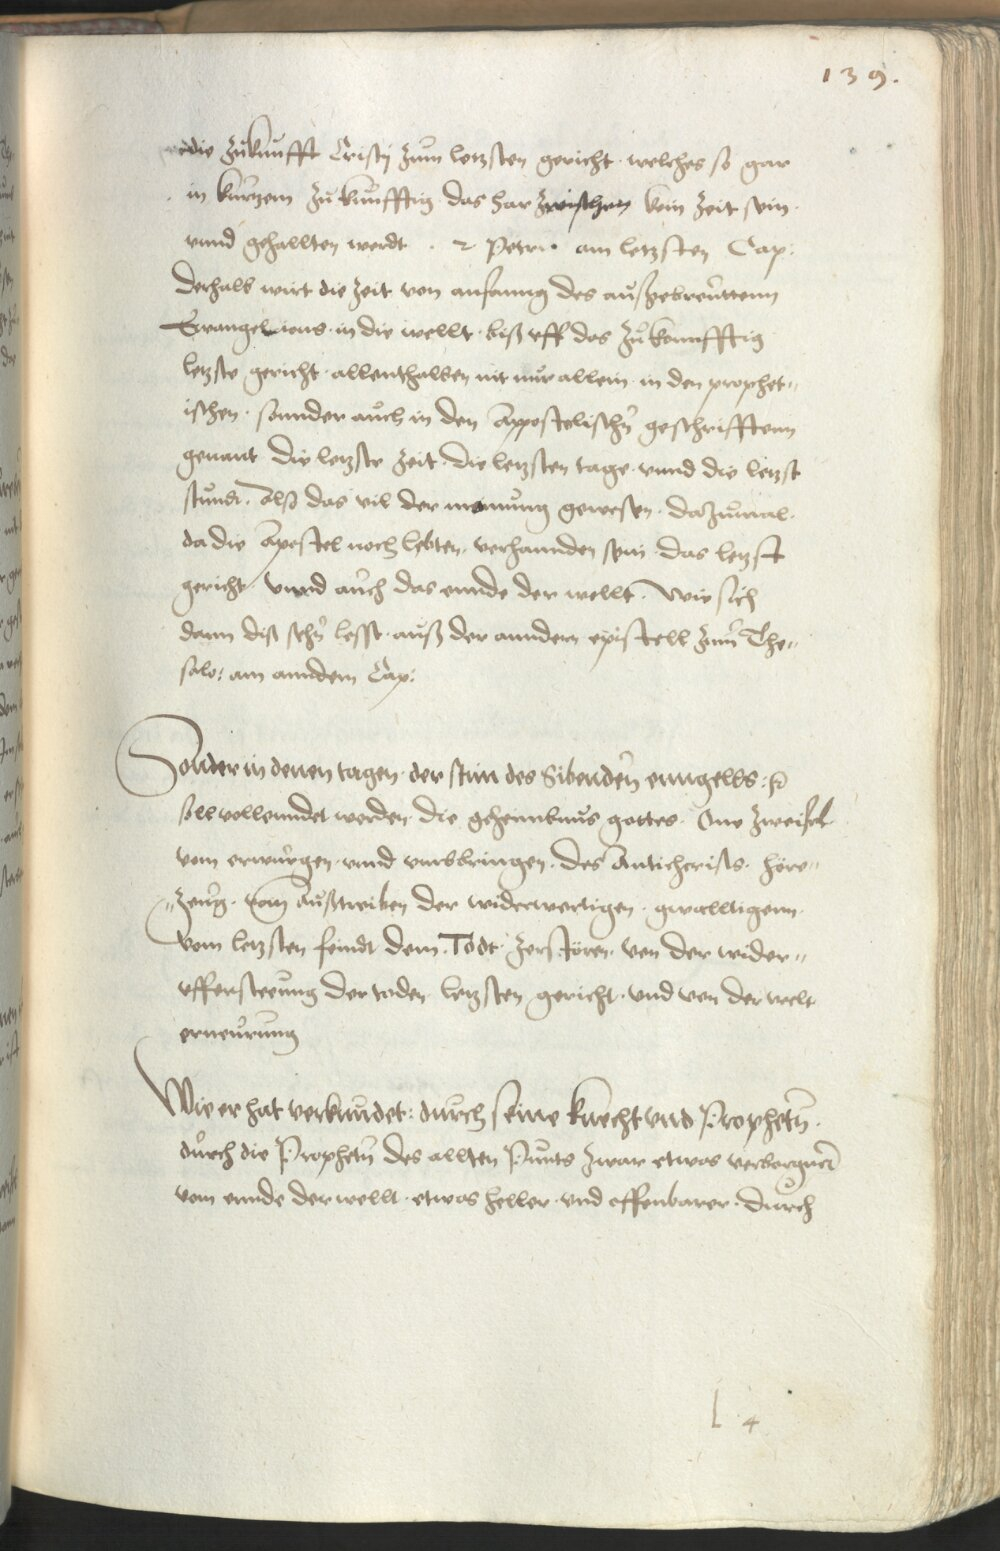 139.
die zůkunfft Cristÿ zum letzsten gericht welches so gar
in kurtzem zůkunfftig das har zwischen kein zeit sein
vnnd gehallten werdt . 2 Petri am letzsten Cap:
Derhalb wirt die zeit von anfanng des außgebreüttenn
Ewangeliens in die wellt biß vff das zůkonnfftig
letzste gericht allenthalben nit nur allein in den prophet„
ischen sonnder auch in den Appostelischñ geschrifftenn
genant die letzste zeit die letzsten tage vnnd die letzst
stund. Alß das vil der meinung gewesen dazůmal
da die Apostel noch lebten, verhannden sein das letzst
gericht vnnd auch das ennde der wellt. Wie sich
dann diß schñ lesst auß der anndern epistell zun The„
salo: am anndern Cap:
Sonder in denen tagen der stim des Sibenden enngells:
soll vollenndet werden die geheimbnus gottes One zweifel
vom erwürgen vnnd vmbbringen des Antichrists höre„
„zeüg. Vom Außtreiben der widerwertigen gwalltigenn
Vom letzsten feindt dem Todt zerstören von der wider„
vffersteeung der toden letzsten gericht vnd von der welt
erneürung
Wie er hat verkundet: durch seine knecht vnd Prophetñ.
durch die Prophetñ des allten Punts zwar etwas verborgner
vom ennde der wellt etwas heller vnd offenbarer durch
l 4